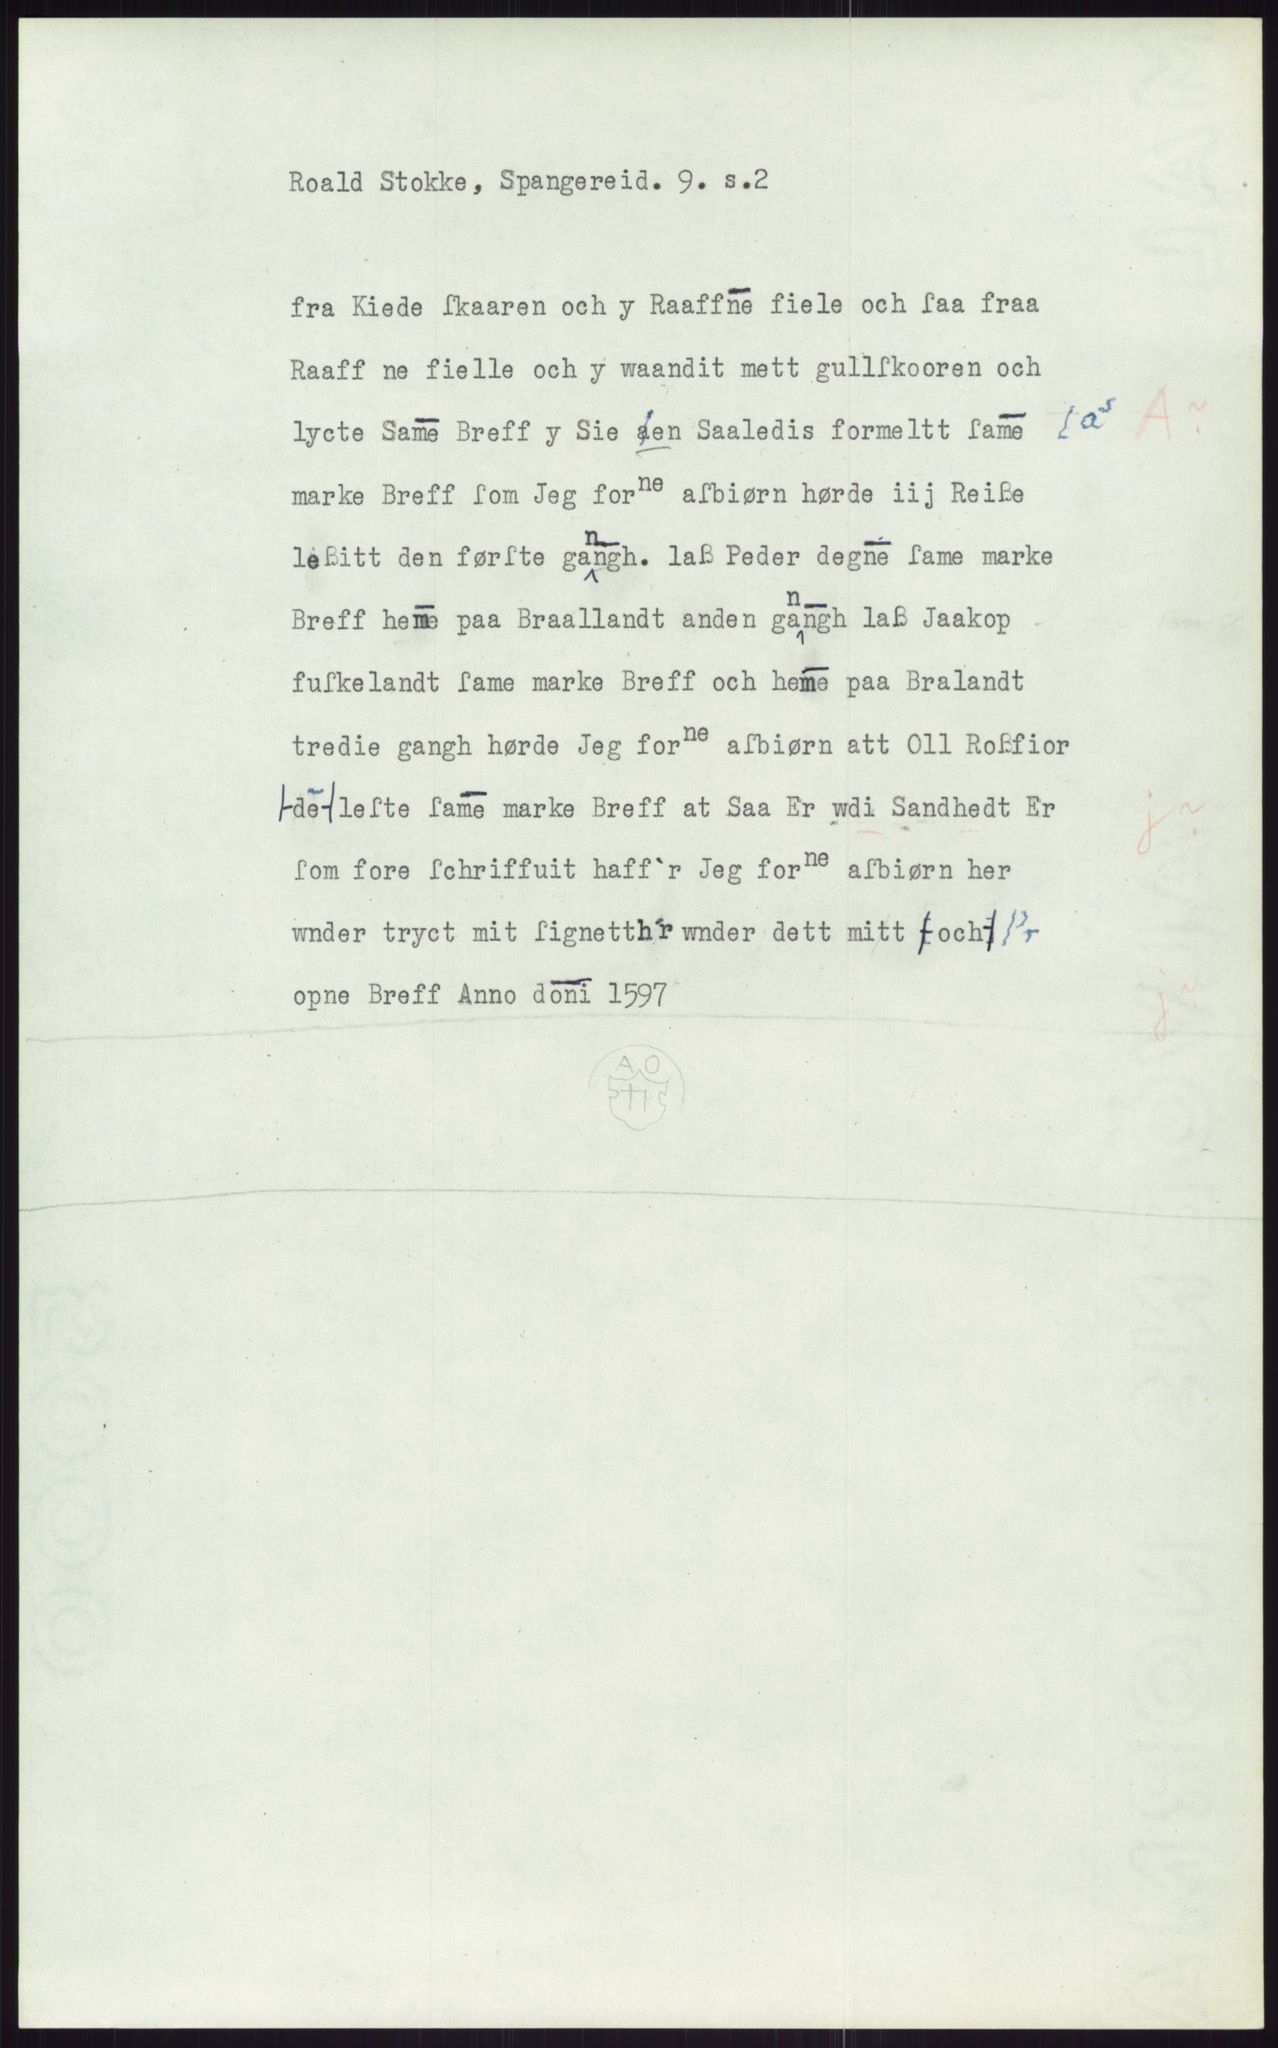 Roald Stokke, Spangereid. 9. s.2
fra Kiede ſkaaren och y Raaffn̅e̅ fiele och ſaa fraa
Raaff ne fielle och y waandit mett gullſkooren och
lycte Sam̅e̅ Breff y Sie den Saaledis formeltt ſam̅e̅ {a A ~
marke Breff ſom Jeg forⁿᵉ aſbiørn hørde iij Reiße
leßitt den førſte ganngh. laß Peder degn̅e̅ ſame marke
Breff hem̅e̅ paa Braallandt anden ganngh laß Jaakop
fuſkelandt ſame marke Breff och hem̅e̅ paa Bralandt
tredie gangh hørde Jeg forⁿᵉ aſbiørn att Oll Roßfior
de leſte ſam̅e̅ marke Breff at Saa Er wdi Sandhedt Er j ~
ſom fore ſchriffuit haff`r Jeg forⁿᵉ aſbiørn her
wnder tryct mit ſignetth'r wnder dett mitt och
opne Breff Anno do̅n̅i̅ 1597 j ~
A O